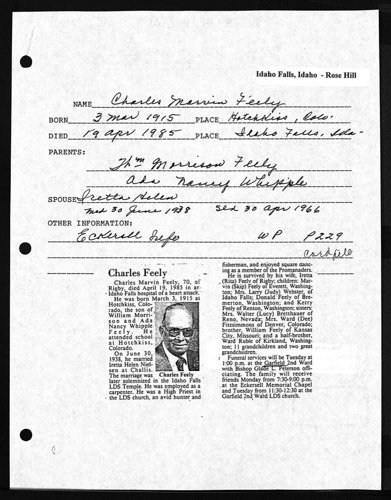 Idaho Falls, Idaho - Rose Hill
NAME Charles Marvin Feely
BORN 3 Mar 1915 PLACE Hotchkiss, Colo.
DIED 19 Apr 1985 PLACE Idaho Falls, Ida-
PARENTS:
Wm Morrison Feely
Ada Nancy Whipple
SPOUSE Iretta Helen
Md 30 June 1938 Sld 30 Apr 1966
OTHER INFORMATION:
Eckersell Info WP P229
Card file
Charles Feely
Charles Marvin Feely, 70, of
Rigby, died April 19, 1985 in an
Idaho Falls hospital of a heart attack.
He was born March 3, 1915 at
Hotchkiss,
Colorado,
the son of
William Morri-
son and Ada
Nancy Whipple
Feely. He
attended school
at Hotchkiss,
Colorado.
On June 30,
1938, he married
Iretta Helen Niel-
sen at Challis.
The marriage was
later solemnized in the Idaho Falls
LDS Temple. He was employed as a
carpenter. He was a High Priest in
the LDS church, an avid hunter and
Charles Feely
fisherman, and enjoyed square danc-
ing as a member of the Promanaders.
He is survived by his wife, Iretta
(Rita) Feely of Rigby; children: Mar-
vin (Skip) Feely of Everett, Washing-
ton; Mrs. Larry (Judy) Webster, of
Idaho Falls; Donald Feely of Bre-
merton, Washington; and Kerry
Feely of Renton, Washington; sisters:
Mrs. Walter (Lucy) Bretthauer of
Reno, Nevada; Mrs. Ward (Dee)
Fitzsimmons of Denver, Colorado;
brother, William Feely of Kansas
City, Missouri; and a half-brother,
Ward Ruble of Kirkland, Washing-
ton; 11 grandchildren and two great
grandchildren.
Funeral services will be Tuesday at
1:00 p.m. at the Garfield 2nd Ward
with Bishop Glade L. Peterson offi-
ciating. The family will receive
friends Monday from 7:30-9:00 p.m.
at the Eckersell Memorial Chapel
and Tuesday from 11:30-12:30 at the
Garfield 2nd Ward LDS church.